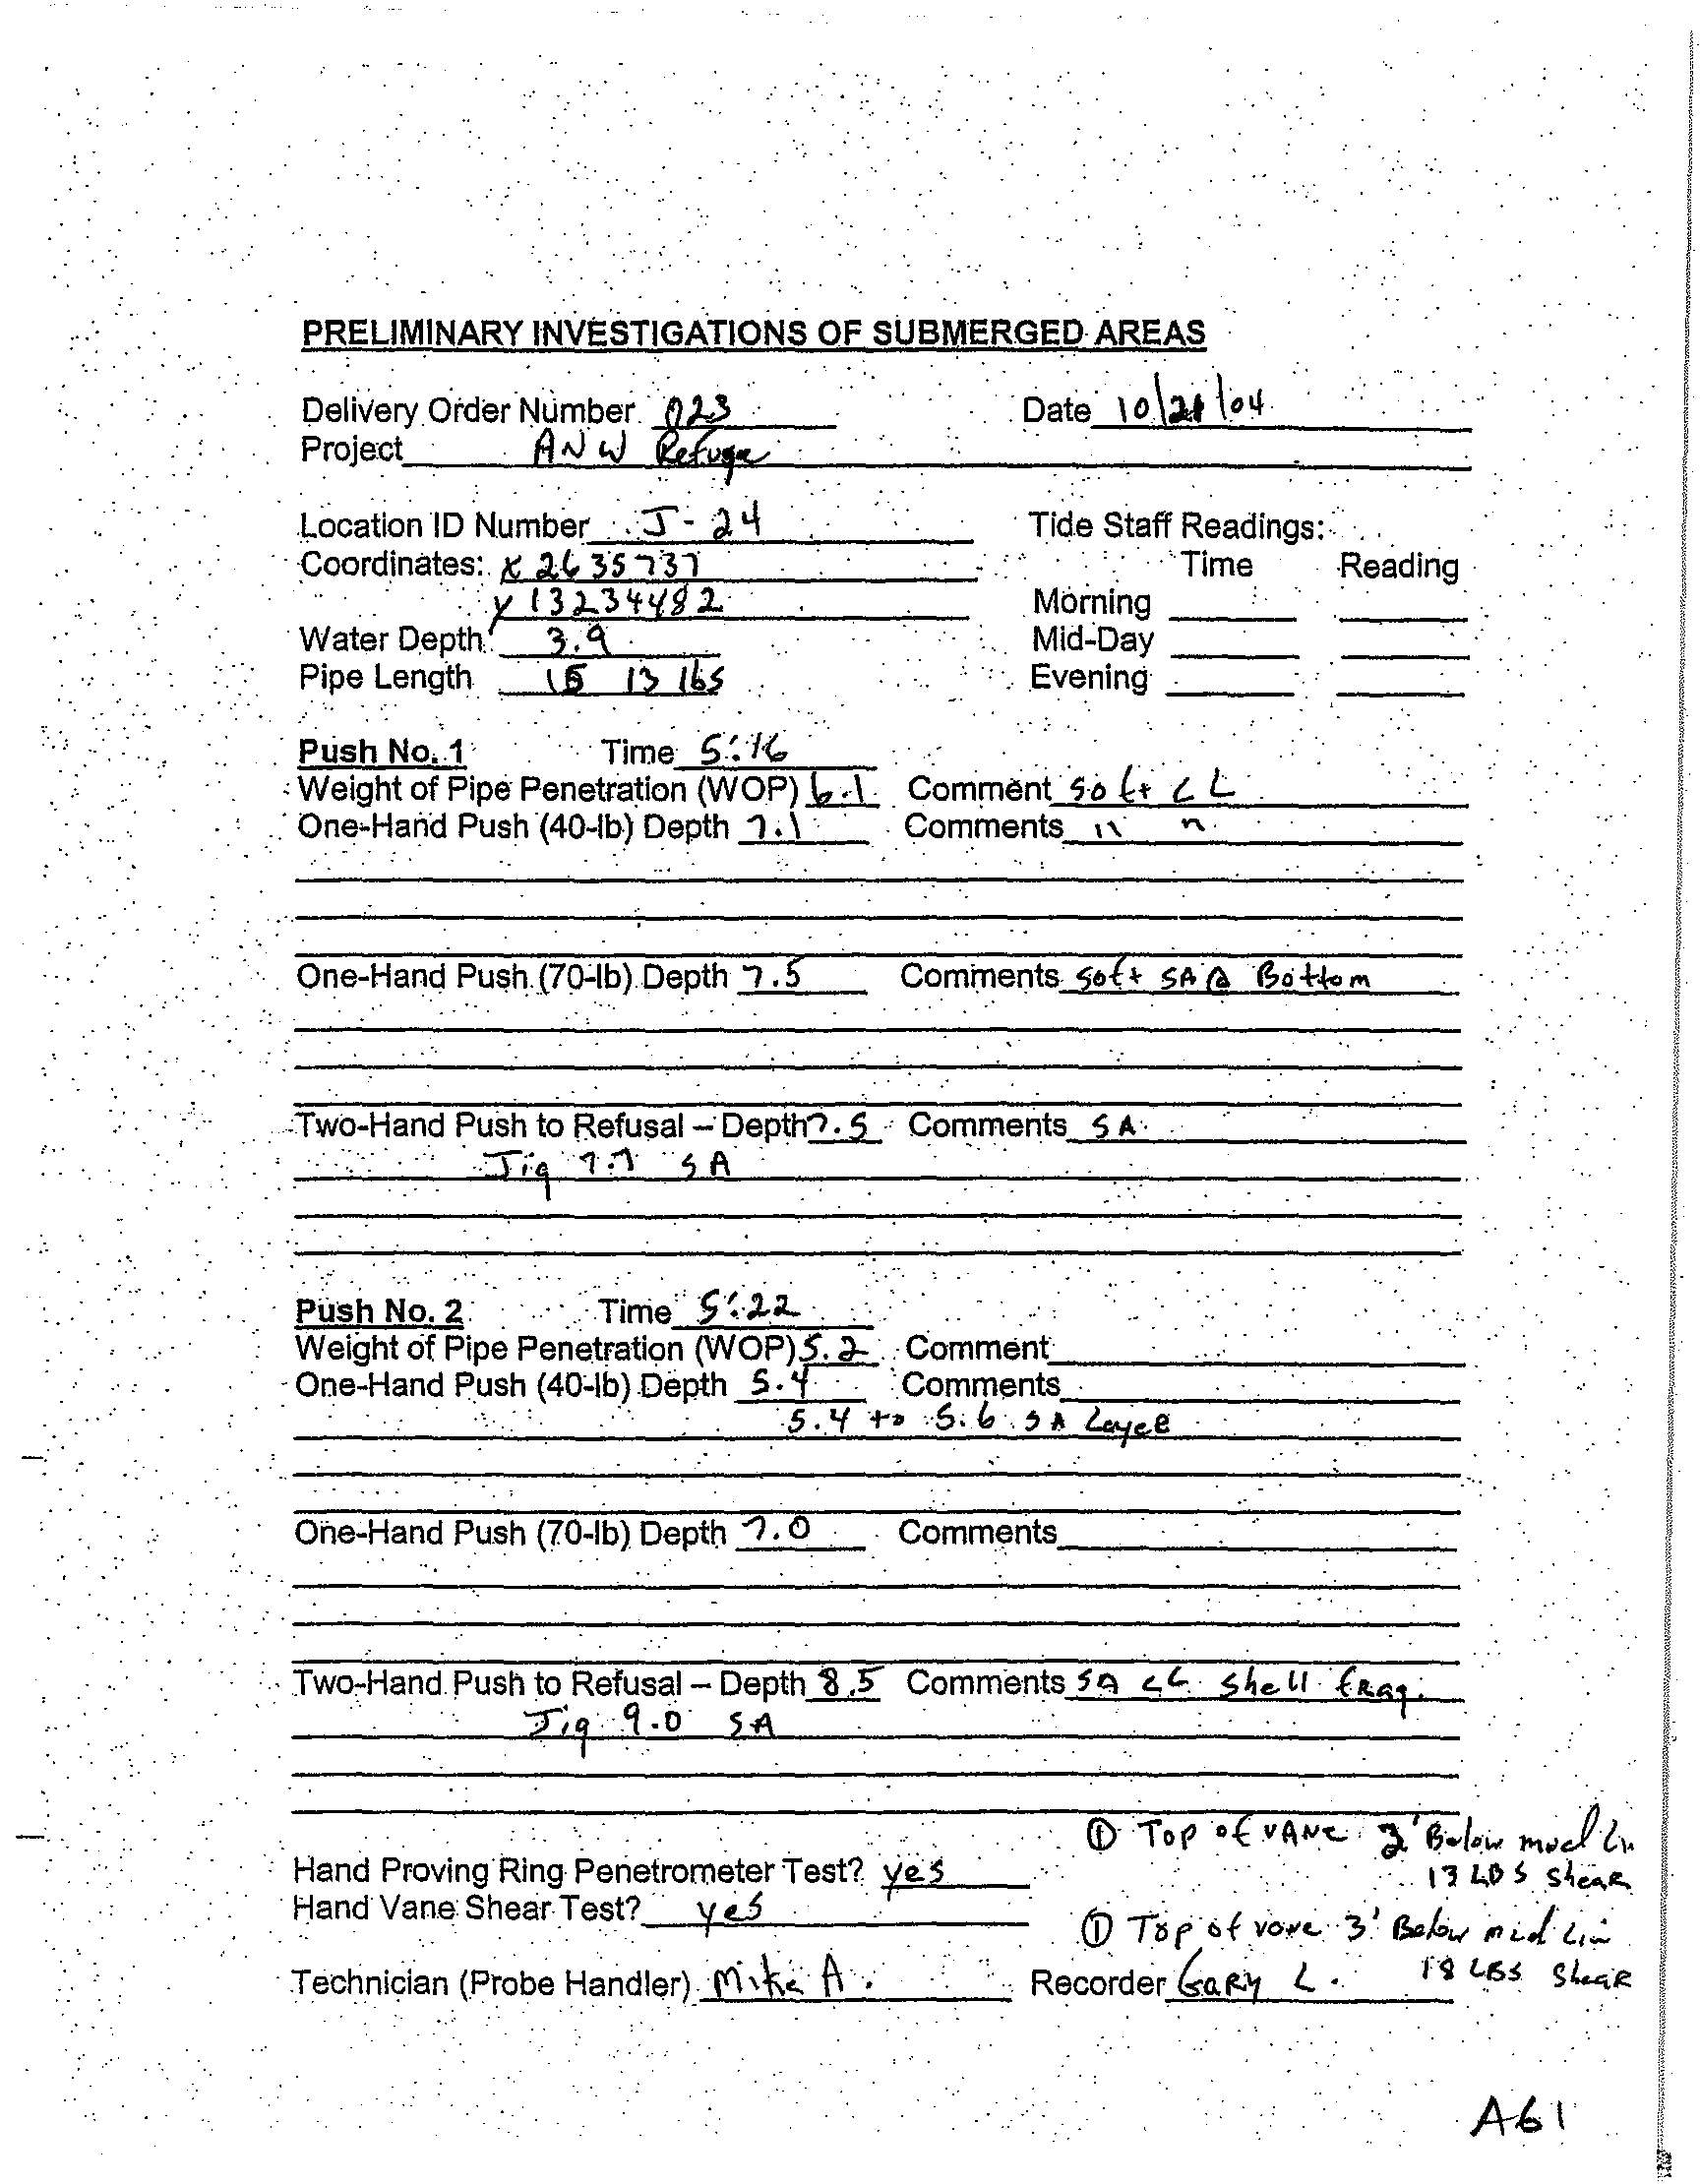 PRELIMINARY INVESTIGATIONS OF SUBMERGED AREAS
Delivery Order Number 023 Date 10/21/04
Project ANW Refuge
Location ID Number J-24 Tide Staff Readings:
Coordinates: X 2635737 Time Reading
Y 13234482 Morning
Water Depth 3.9 Mid-Day
Pipe Length 15 13 lbs Evening
Push No. 1 Time 5:16
Weight of Pipe Penetration (WOP) 6.1 Comment Soft CL
One-Hand Push (40-lb) Depth 7.1 Comments " "
One-Hand Push (70-lb) Depth 7.5 Comments Soft SA @ Bottom
Two-Hand Push to Refusal – Depth 7.5 Comments SA
Jig 7.7 SA
Push No. 2 Time 5:22
Weight of Pipe Penetration (WOP) 5.2 Comment
One-Hand Push (40-lb) Depth 5.4 Comments
5.4 to 5.6 SA Layer
One-Hand Push (70-lb) Depth 7.0 Comments
Two-Hand Push to Refusal – Depth 8.5 Comments SA CL Shell frag.
Jig 9.0 SA
① Top of VANE 2' Below mud Lin
Hand Proving Ring Penetrometer Test? yes 13 LBS Shear
Hand Vane Shear Test? yes
① Top of vane 3' Below mud Lin
Technician (Probe Handler) Mike A. Recorder Gary L. 18 LBS Shear
A61